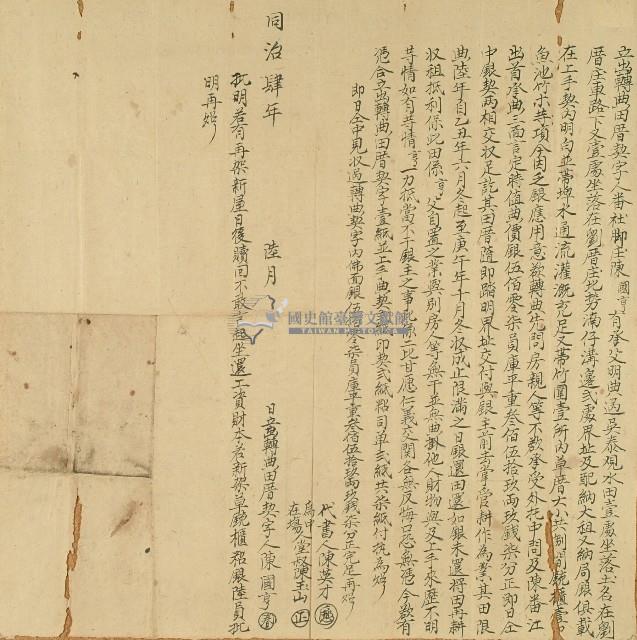 立出轉典田厝契字人番社脚庄陳國亨有承父明典過吳泰觀水田壹處坐落土名在劉
厝庄車路下又壹處坐落在劉厝庄北勢湳仔溝邊弍處界址及配納大租又納局銀俱載
在上手契內明白並帶埤水通流灌溉充足又帶竹圍壹所內草厝大小共 間
魚池竹木等項今因乏銀應用意欲轉典先問房親人等不敢承受外托中問及陳番江
出首承典三面言定時值典價銀伍佰零柒員庫平重叁佰伍拾玖兩玖錢柒分正即日仝
中銀契兩相交收足訖其田厝隨即踏明界址交付與銀主前去掌管耕作為業其田限
典陸年自乙丑年六月冬起至庚午年十月冬收成止限滿之日銀還田還如銀未還將田再耕
收租抵利保此田係亨父自置之業與別房人等無干並無典掛他人財物與及上手來歷不明
等情如有等情亨一力抵當不干銀主之事此係二比甘愿仁義交關各無反悔口恐無憑今欲有
憑合立出轉典田厝契字壹紙並上三典契 印契弍紙粘司单弍紙共柒紙付执為炤
即日仝中見收過轉典契字內佛面銀伍佰零柒員庫平重叁佰伍拾玖兩玖錢柒分正完足再炤
代書人陳英才
為中
在塲人堂叔陳玉山
同治肆年 陸月 日立出轉典田厝契字人陳國亨
批明若有再架新屋日後贖回不敢言起坐還工資財本若新架草 櫃 銀陸員批
明再炤
國史館臺灣文獻館
TAIWAN HISTORICA